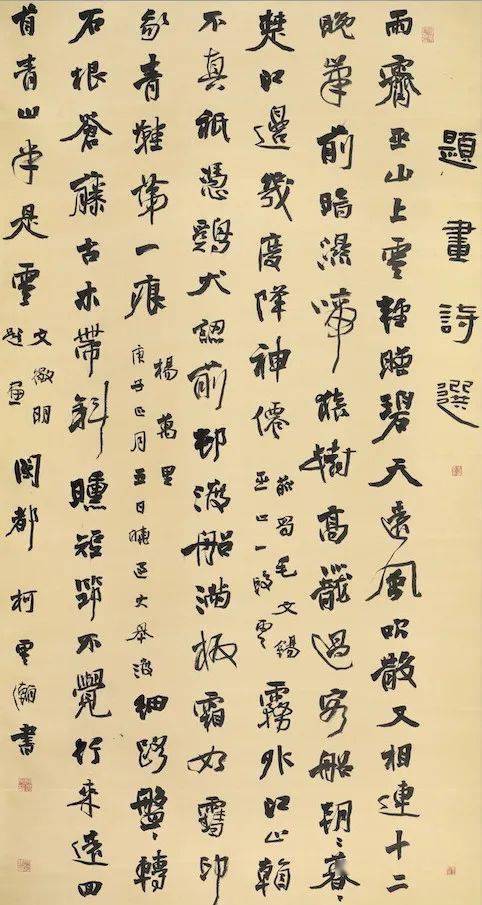 題畫詩選
雨霽巫山上雲輕映碧天遠風吹散又相連十二
晚峯前暗濕啼猿樹高籠過客船朝〻暮〻
楚江邊幾度降神僊 前蜀毛文錫 巫山一段雲 霧外江山看
不真祇憑鷄犬認前邨渡船滿板霜如雪印
我青鞋第一痕 楊萬里 庚子正月五日曉過大皋渡 細路盤〻轉
石根蒼藤古木帶斜曛短筇不覺行來遠回
首青山半是雲 文徵明 題畫 閩都 柯雲瀚書